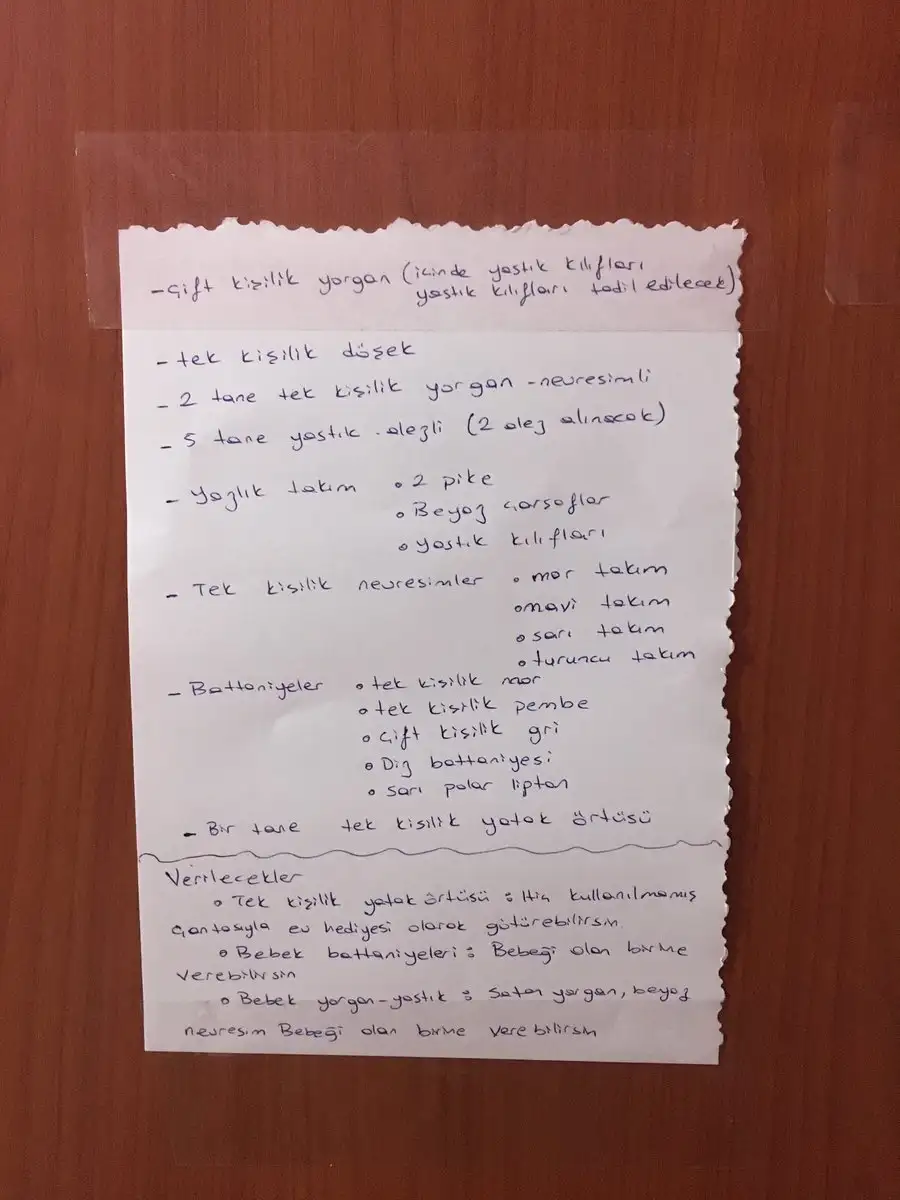 - Çift kişilik yorgan (içinde yastık kılıfları
yastık kılıfları tadil edilecek)
- tek kişilik döşek
- 2 tane tek kişilik yorgan - nevresimli
- 5 tane yastık - alezli (2 alez alınacak)
- Yazlık takım • 2 pike
• Beyaz çarşaflar
• yastık kılıfları
- Tek kişilik nevresimler • mor takım
• mavi takım
• sarı takım
• turuncu takım
- Battaniyeler • tek kişilik mor
• tek kişilik pembe
• çift kişilik gri
• Diz battaniyesi
• sarı polar lipton
- Bir tane tek kişilik yatak örtüsü
Verilecekler
• Tek kişilik yatak örtüsü : Hiç kullanılmamış
çantasıyla ev hediyesi olarak götürebilirsin
• Bebek battaniyeleri : Bebeği olan birine
verebilirsin
• Bebek yorgan-yastık : Saten yorgan, beyaz
nevresim Bebeği olan birine verebilirsin